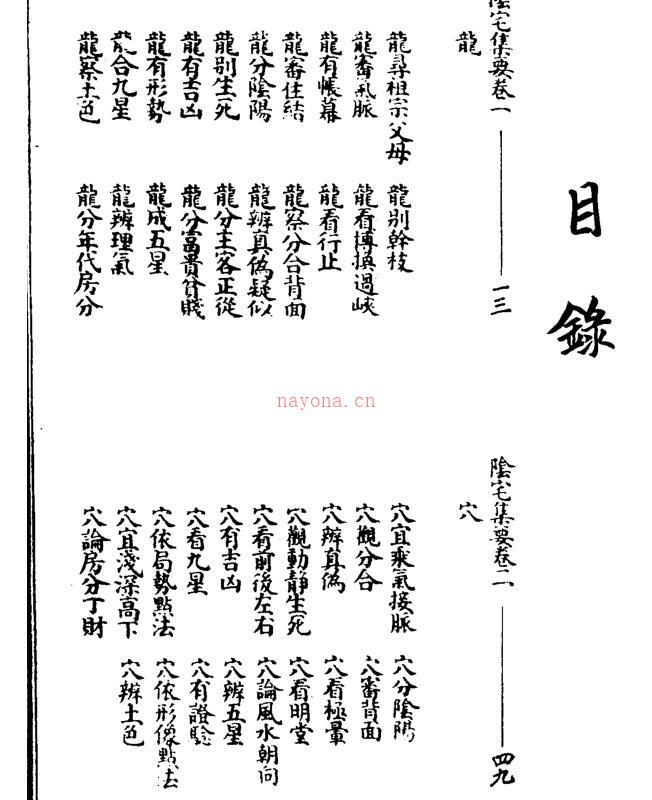 目錄
陰宅集要卷一
一三
龍
龍尋祖宗父母
龍別幹枝
龍審氣脈
龍看博換過峽
龍有帳幕
龍看行止
龍審住結
龍察分合背面
龍分陰陽
龍辨真偽疑似
龍別生死
龍分主客正從
龍有吉凶
龍分富貴貧賤
龍有形勢
龍成五星
龍合九星
龍辨理氣
龍察土色
龍分年代房分
陰宅集要卷二
四九
穴
穴宜乘氣接脈
穴分陰陽
穴觀分合
穴審背面
穴辨真偽
穴看極暈
穴觀動靜生死
穴看明堂
穴看前後左右
穴論風水朝向
穴有吉凶
穴辨五星
穴看九星
穴有證騐
穴依局勢點法
穴依形像點法
穴宜淺深高下
穴辨土色
穴論房分丁財
nayona.cn